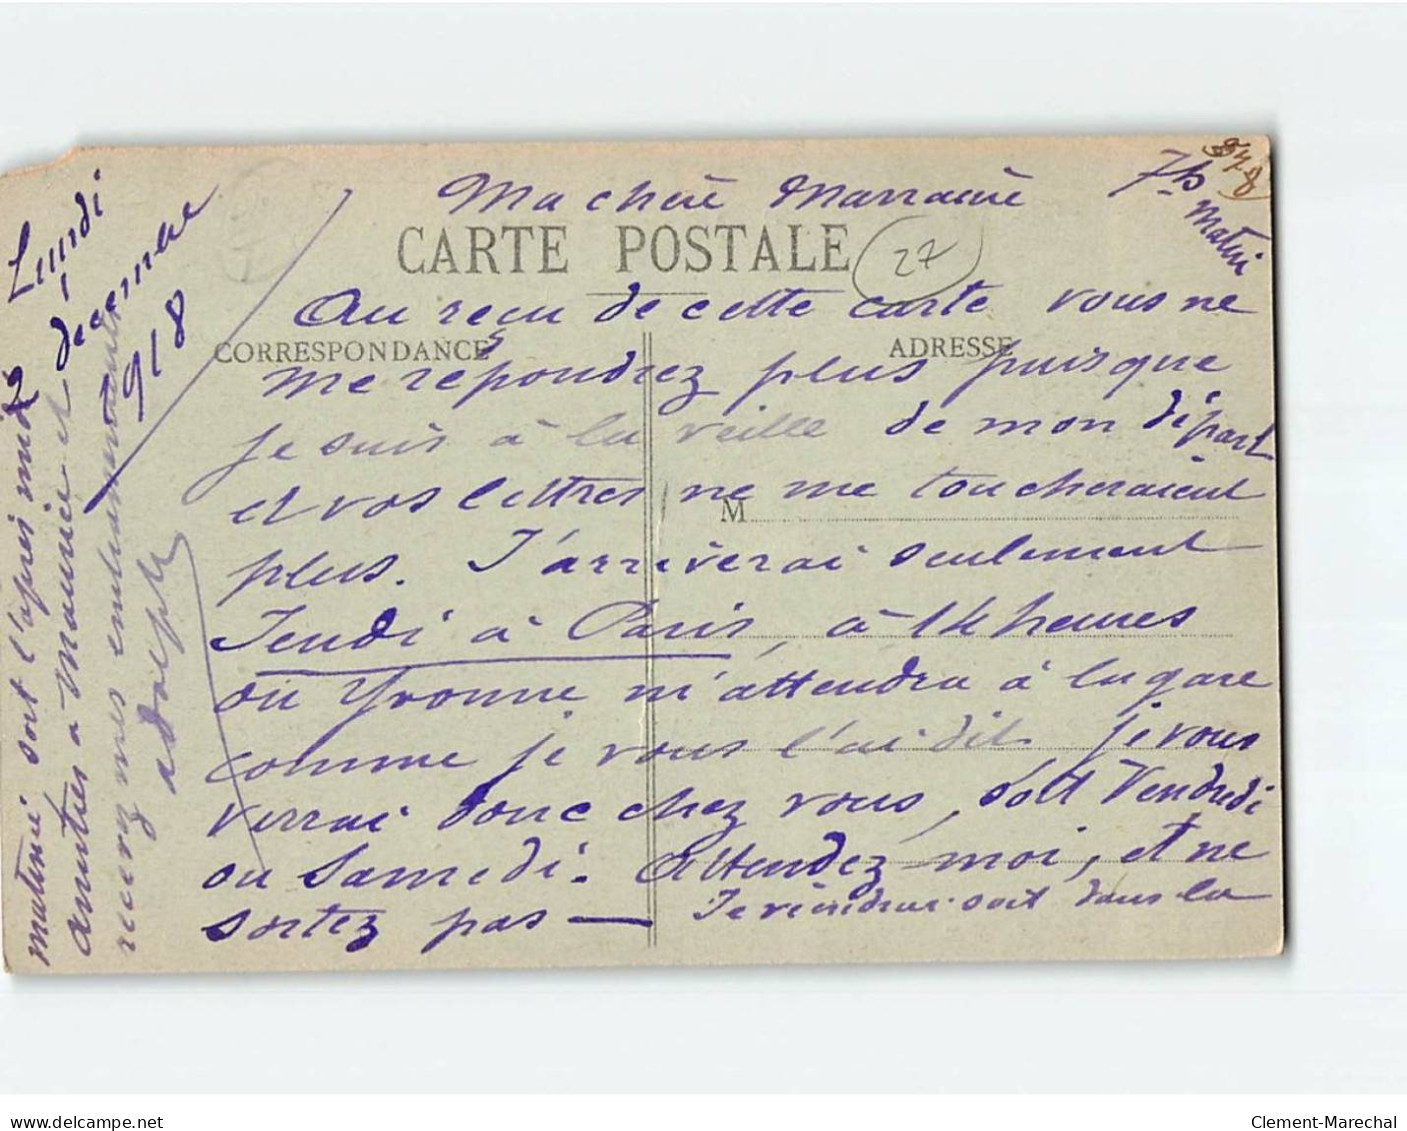 Lundi
2 décembre
918
7h
matin
Ma chère Marraine
CARTE POSTALE
27
Au reçu de cette carte vous ne
CORRESPONDANCE
ADRESSE
me répondrez plus puisque
je suis à la veille de mon départ
et vos lettres ne me toucheraient
M
plus. J'arriverai seulement
Jeudi à Paris, à 14 heures
ou Yvonne m'attendra à la gare
comme je vous l'ai dit je vous
verrai donc chez vous, soit Vendredi
ou Samedi. Attendez-moi, et ne
sortez pas — Je viendrai soit dans la
matinée soit l'après midi
amitiés à Mamie et
recevez mes embrassements
adolphe
delcampe.net
Clement-Marechal